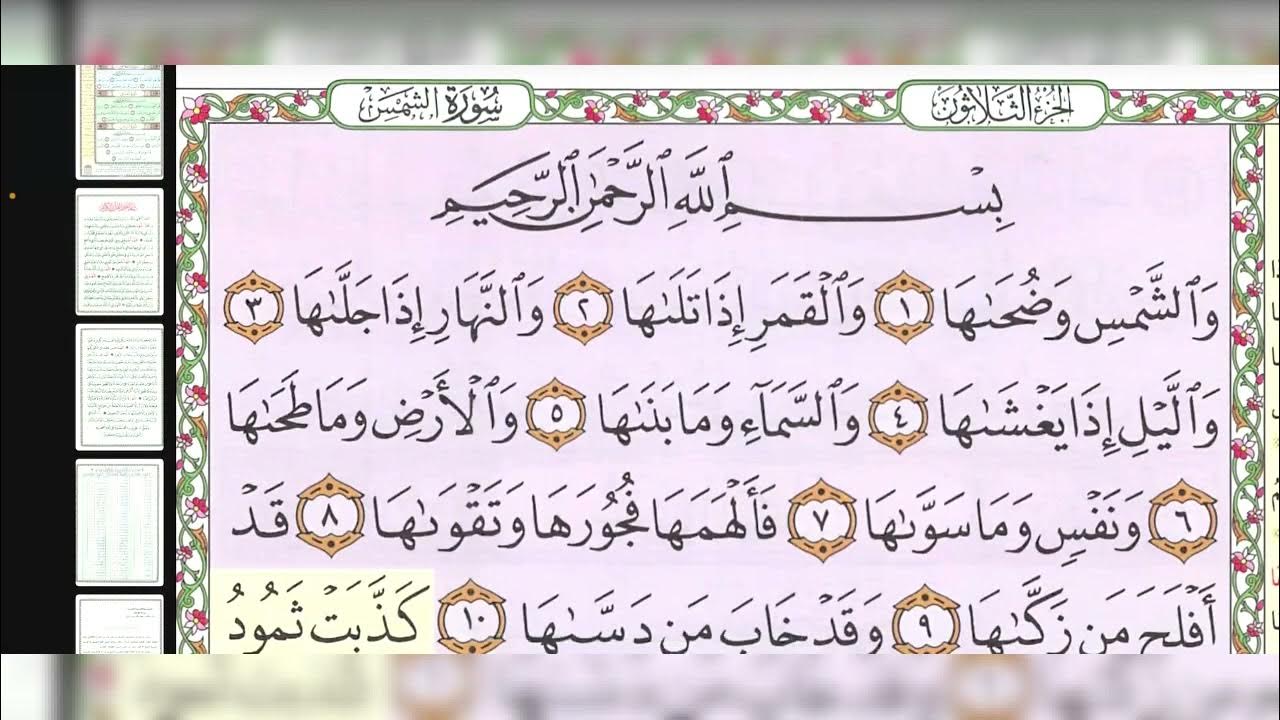 سُورَةُ الشَّمْسِ
الجُزْءُ الثَّلَاثُونَ
بِسْمِ ٱللَّهِ ٱلرَّحْمَٰنِ ٱلرَّحِيمِ
وَٱلشَّمْسِ وَضُحَىٰهَا ١ وَٱلْقَمَرِ إِذَا تَلَىٰهَا ٢ وَٱلنَّهَارِ إِذَا جَلَّىٰهَا ٣
وَٱلَّيْلِ إِذَا يَغْشَىٰهَا ٤ وَٱلسَّمَآءِ وَمَا بَنَىٰهَا ٥ وَٱلْأَرْضِ وَمَا طَحَىٰهَا
٦ وَنَفْسٍ وَمَا سَوَّىٰهَا ٧ فَأَلْهَمَهَا فُجُورَهَا وَتَقْوَىٰهَا ٨ قَدْ
أَفْلَحَ مَن زَكَّىٰهَا ٩ وَقَدْ خَابَ مَن دَسَّىٰهَا ١٠ كَذَّبَتْ ثَمُودُ